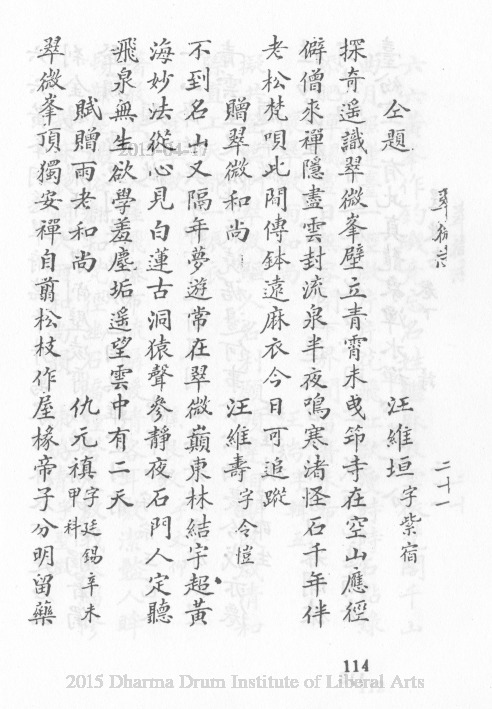 翠微岩
二十一
仝題 汪維垣字紫宿
探奇遥識翠微峯壁立青霄未曳筇寺在空山應徑
僻僧來禪隱盡雲封流泉半夜鳴寒渚怪石千年伴
老松梵唄此間傳鉢遠麻衣今日可追蹤
贈翠微和尚 汪維壽字令愷
不到名山又隔年夢遊常在翠微巔東林結宇超黃
海妙法從心見白蓮古洞猿聲參靜夜石門人定聽
飛泉無生欲學羞塵垢遥望雲中有二天
賦贈雨老和尚 仇元禛字廷錫辛未甲科
翠微峯頂獨安禪自剪松枝作屋椽帝子分明留藥
114
2015 Dharma Drum Institute of Liberal Arts